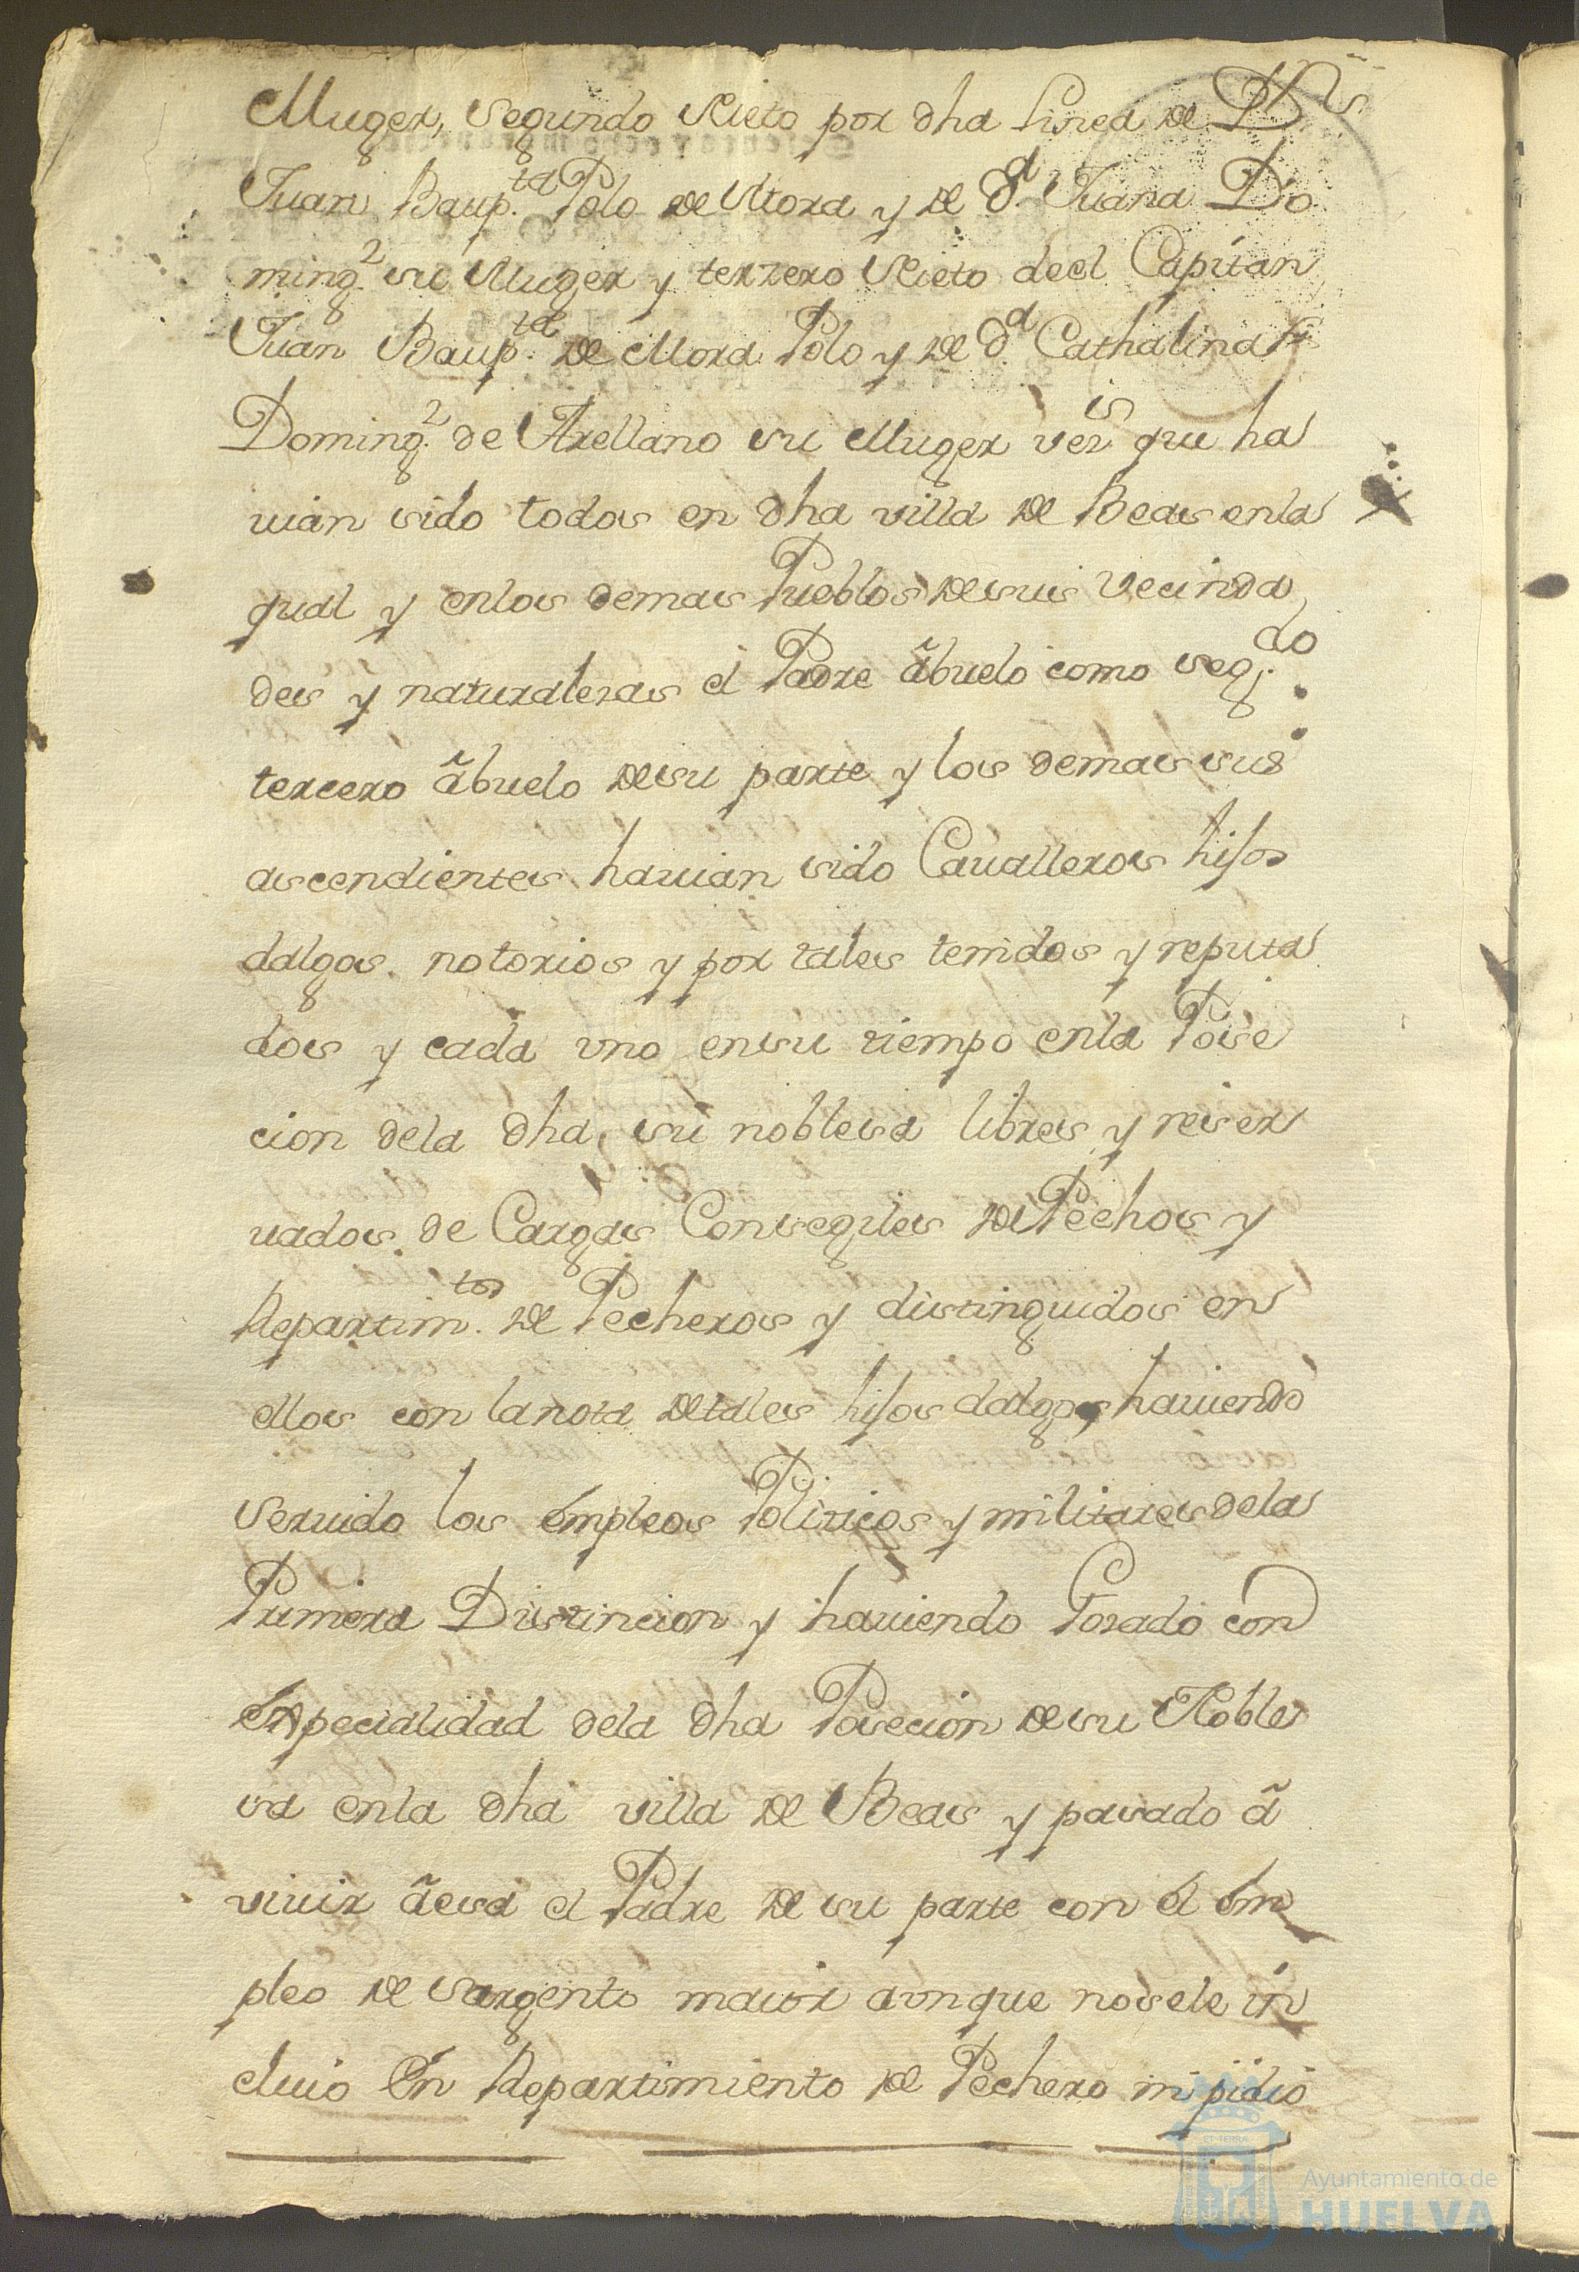 Muger, Segundo Nieto por dha Linea de Dn
Juan Baup.ta Polo de Mora y de d.a Juana Do
ming.z su Muger y terzero Nieto deel Capitan
Juan Baup.ta de Mora Polo y de d.a Cathalina
Doming.z de Arellano su Muger vez.s que ha
uian sido todos en dha villa de Beas enla
qual y enlos demas Pueblos desus Vecinda
des y naturalezas el Padre ãbuelo como seg.do
tercero ãbuelo desu parte y los demas sus
ascendientes hauian sido Caualleros hijos
dalgos notorios y por tales tenidos y reputa
dos y cada vno ensu tiempo enla Pose
cion dela dha su noblesa libres y reser
uados de Cargas Consegiles de Pechos y
Repartim.tos de Pecheros y distinguidos en
ellos con lanota detales hijos dalgos, hauiendo
Seruido los empleos Politicos y militares dela
Primera Distincion y hauiendo Gozado con
Expecialidad dela dha Posecion desu Noble
sa enla dha villa de Beas y pasado ã
viuir ãesa el Padre de su parte con el Em
pleo de Sargento maior aunque nosele in
cluio En Repartimiento de Pechero ni pidio
Ayuntamiento de
HUELVA